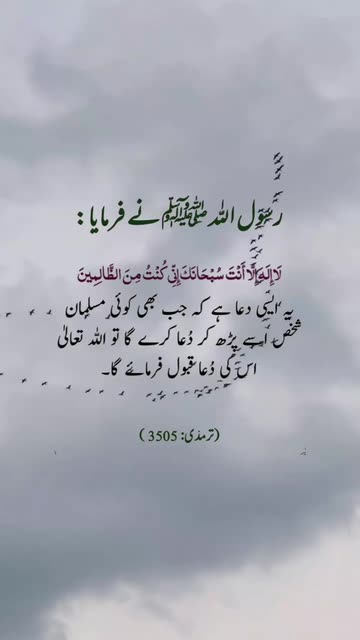 رسول اللہ ﷺ نے فرمایا:
لَا إِلَهَ إِلَّا أَنْتَ سُبْحَانَكَ إِنِّي كُنْتُ مِنَ الظَّالِمِينَ
یہ ایسی دعا ہے کہ جب بھی کوئی مسلمان
شخص اسے پڑھ کر دُعا کرے گا تو اللہ تعالیٰ
اس کی دُعا قبول فرمائے گا۔
(ترمذی: 3505)